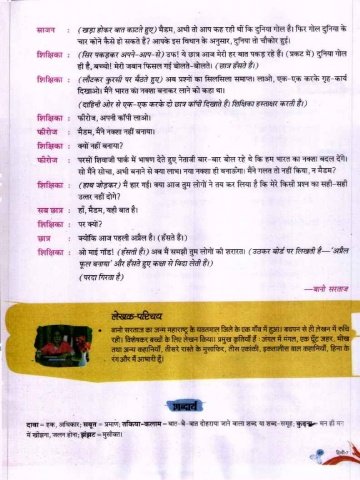 साजन : (खड़ा होकर बात काटते हुए) मैडम, अभी तो आप कह रही थीं कि दुनिया गोल है। फिर गोल दुनिया के
चार कोने कैसे हो सकते हैं? आपके इस विधान के अनुसार, दुनिया तो चौकोर हुई।
शिक्षिका : (सिर पकड़कर अपने-आप-से) उफ! ये छात्र आज मेरी हर बात पकड़ रहे हैं। (प्रकट में) दुनिया गोल
ही है, बच्चो! मेरी जबान फिसल गई बोलते-बोलते। (छात्र हँसते हैं।)
शिक्षिका : (लौटकर कुरसी पर बैठते हुए) अब प्रश्नों का सिलसिला समाप्त। लाओ, एक-एक करके गृह-कार्य
दिखाओ। मैंने भारत का नक्शा बनाकर लाने को कहा था।
(दाहिनी ओर से एक-एक करके दो छात्र कॉपी दिखाते हैं। शिक्षिका हस्ताक्षर करती हैं।)
शिक्षिका : फीरोज, अपनी कॉपी लाओ।
फीरोज : मैडम, मैंने नक्शा नहीं बनाया।
शिक्षिका : क्यों नहीं बनाया?
फीरोज : परसों शिवाजी पार्क में भाषण देते हुए नेताजी बार-बार बोल रहे थे कि हम भारत का नक्शा बदल देंगे।
सो मैंने सोचा, अभी बनाने से क्या लाभ। नया नक्शा ही बनाऊँगा। मैंने गलत तो नहीं किया, न मैडम?
शिक्षिका : (हाथ जोड़कर) मैं हार गई। क्या आज तुम लोगों ने तय कर लिया है कि मेरे किसी प्रश्न का सही-सही
उत्तर नहीं दोगे?
सब छात्र : हाँ, मैडम, यही बात है।
शिक्षिका : पर क्यों?
छात्र : क्योंकि आज पहली अप्रैल है। (हँसते हैं।)
शिक्षिका : ओ माई गॉड! (हँसती हैं।) अब मैं समझी तुम लोगों की शरारत। (उठकर बोर्ड पर लिखती है—'अप्रैल
फूल बनाया' और हँसते हुए कक्षा से विदा लेती हैं।)
(परदा गिरता है)
—बानो सरताज
लेखक-परिचय
बानो सरताज का जन्म महाराष्ट्र के यवतमाल जिले के एक गाँव में हुआ। बचपन से ही लेखन में रुचि
रही। विशेषकर बच्चों के लिए लेखन किया। प्रमुख कृतियाँ हैं : जंगल में मंगल, एक घूँट जहर, भीख
तथा अन्य कहानियाँ, तीसरे रास्ते के मुसाफिर, तीस एकांकी, इकतालीस बाल कहानियाँ, हिना के
रंग और मैं आभारी हूँ।
शब्दार्थ
दावा = हक, अधिकार; सबूत = प्रमाण; तकिया-कलाम = बात-बे-बात दोहराया जाने वाला शब्द या शब्द-समूह; कुढ़ना = मन ही मन
में खीझना, जलन होना; झंझट = मुसीबत।